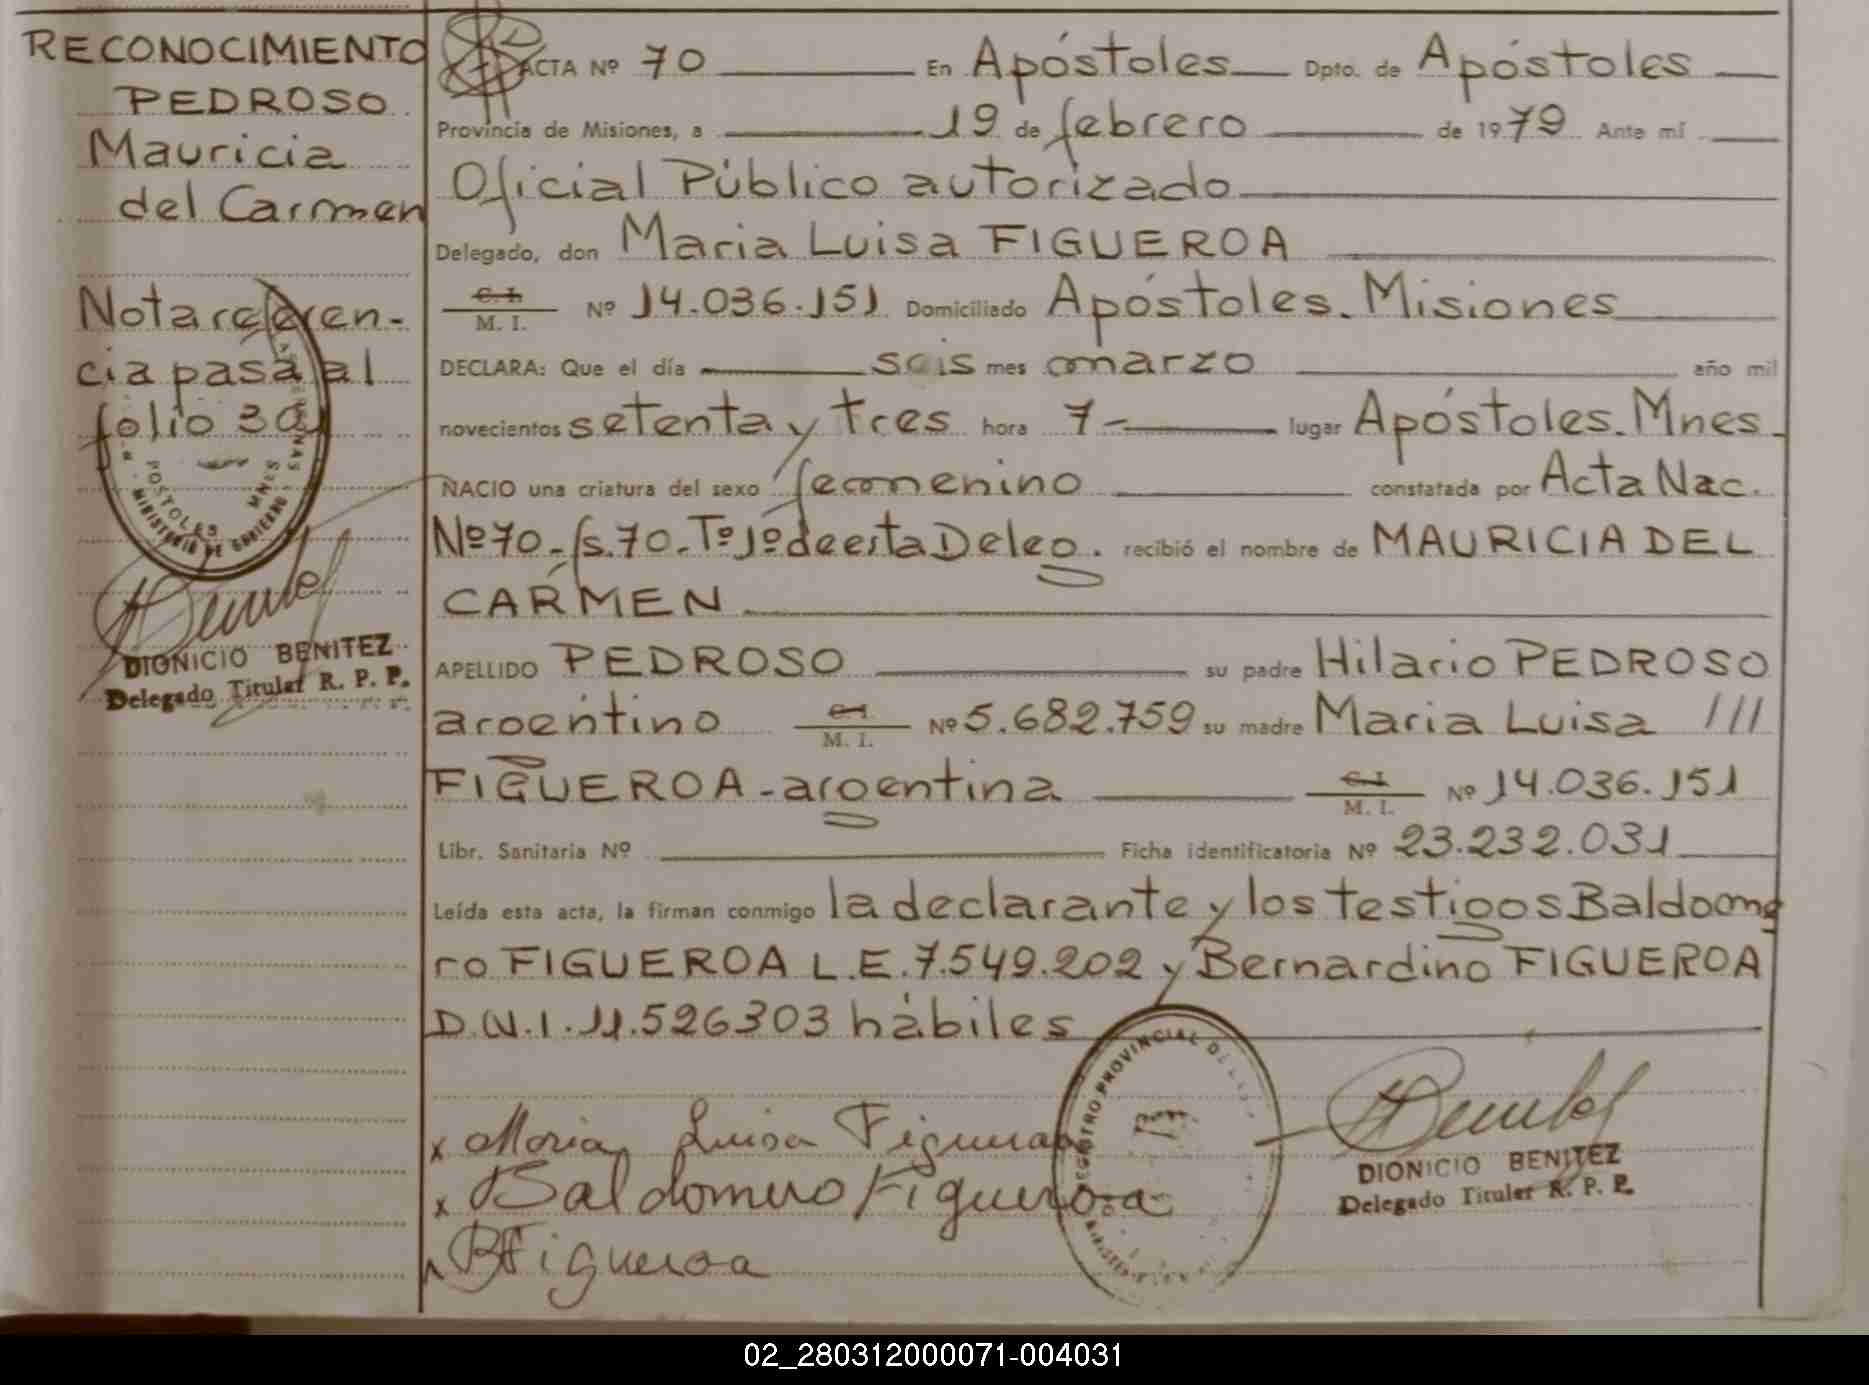 RECONOCIMIENTO
PEDROSO
Mauricia
del Carmen
Nota referen-
cia pasa al
folio 30
POSTOLES MNES
MINISTERIO DE GOBIERNO
DIONICIO BENITEZ
Delegado Titular R. P. P.
ACTA Nº 70 En Apóstoles Dpto. de Apóstoles
Provincia de Misiones, a 19 de febrero de 1979 Ante mí
Oficial Público autorizado
Delegado, don Maria Luisa FIGUEROA
C. I. / M. I. Nº 14.036.151 Domiciliado Apóstoles. Misiones
DECLARA: Que el día seis mes marzo año mil
novecientos setenta y tres hora 7- lugar Apóstoles. Mnes.
NACIO una criatura del sexo femenino constatada por Acta Nac.
Nº 70- fs. 70- Tº 1º de esta Deleg. recibió el nombre de MAURICIA DEL
CARMEN
APELLIDO PEDROSO su padre Hilario PEDROSO
argentino C. I. / M. I. Nº 5.682.759 su madre Maria Luisa ///
FIGUEROA - argentina C. I. / M. I. Nº 14.036.151
Libr. Sanitaria Nº Ficha identificatoria Nº 23.232.031
Leída esta acta, la firman conmigo la declarante y los testigos Baldome
ro FIGUEROA L.E. 7.549.202 y Bernardino FIGUEROA
D.N.I. 11.526303 hábiles
REGISTRO PROVINCIAL DE LAS
x Maria Luisa Figueroa
x Baldomero Figueroa
B Figueroa
DIONICIO BENITEZ
Delegado Titular R. P. P.
02_280312000071-004031